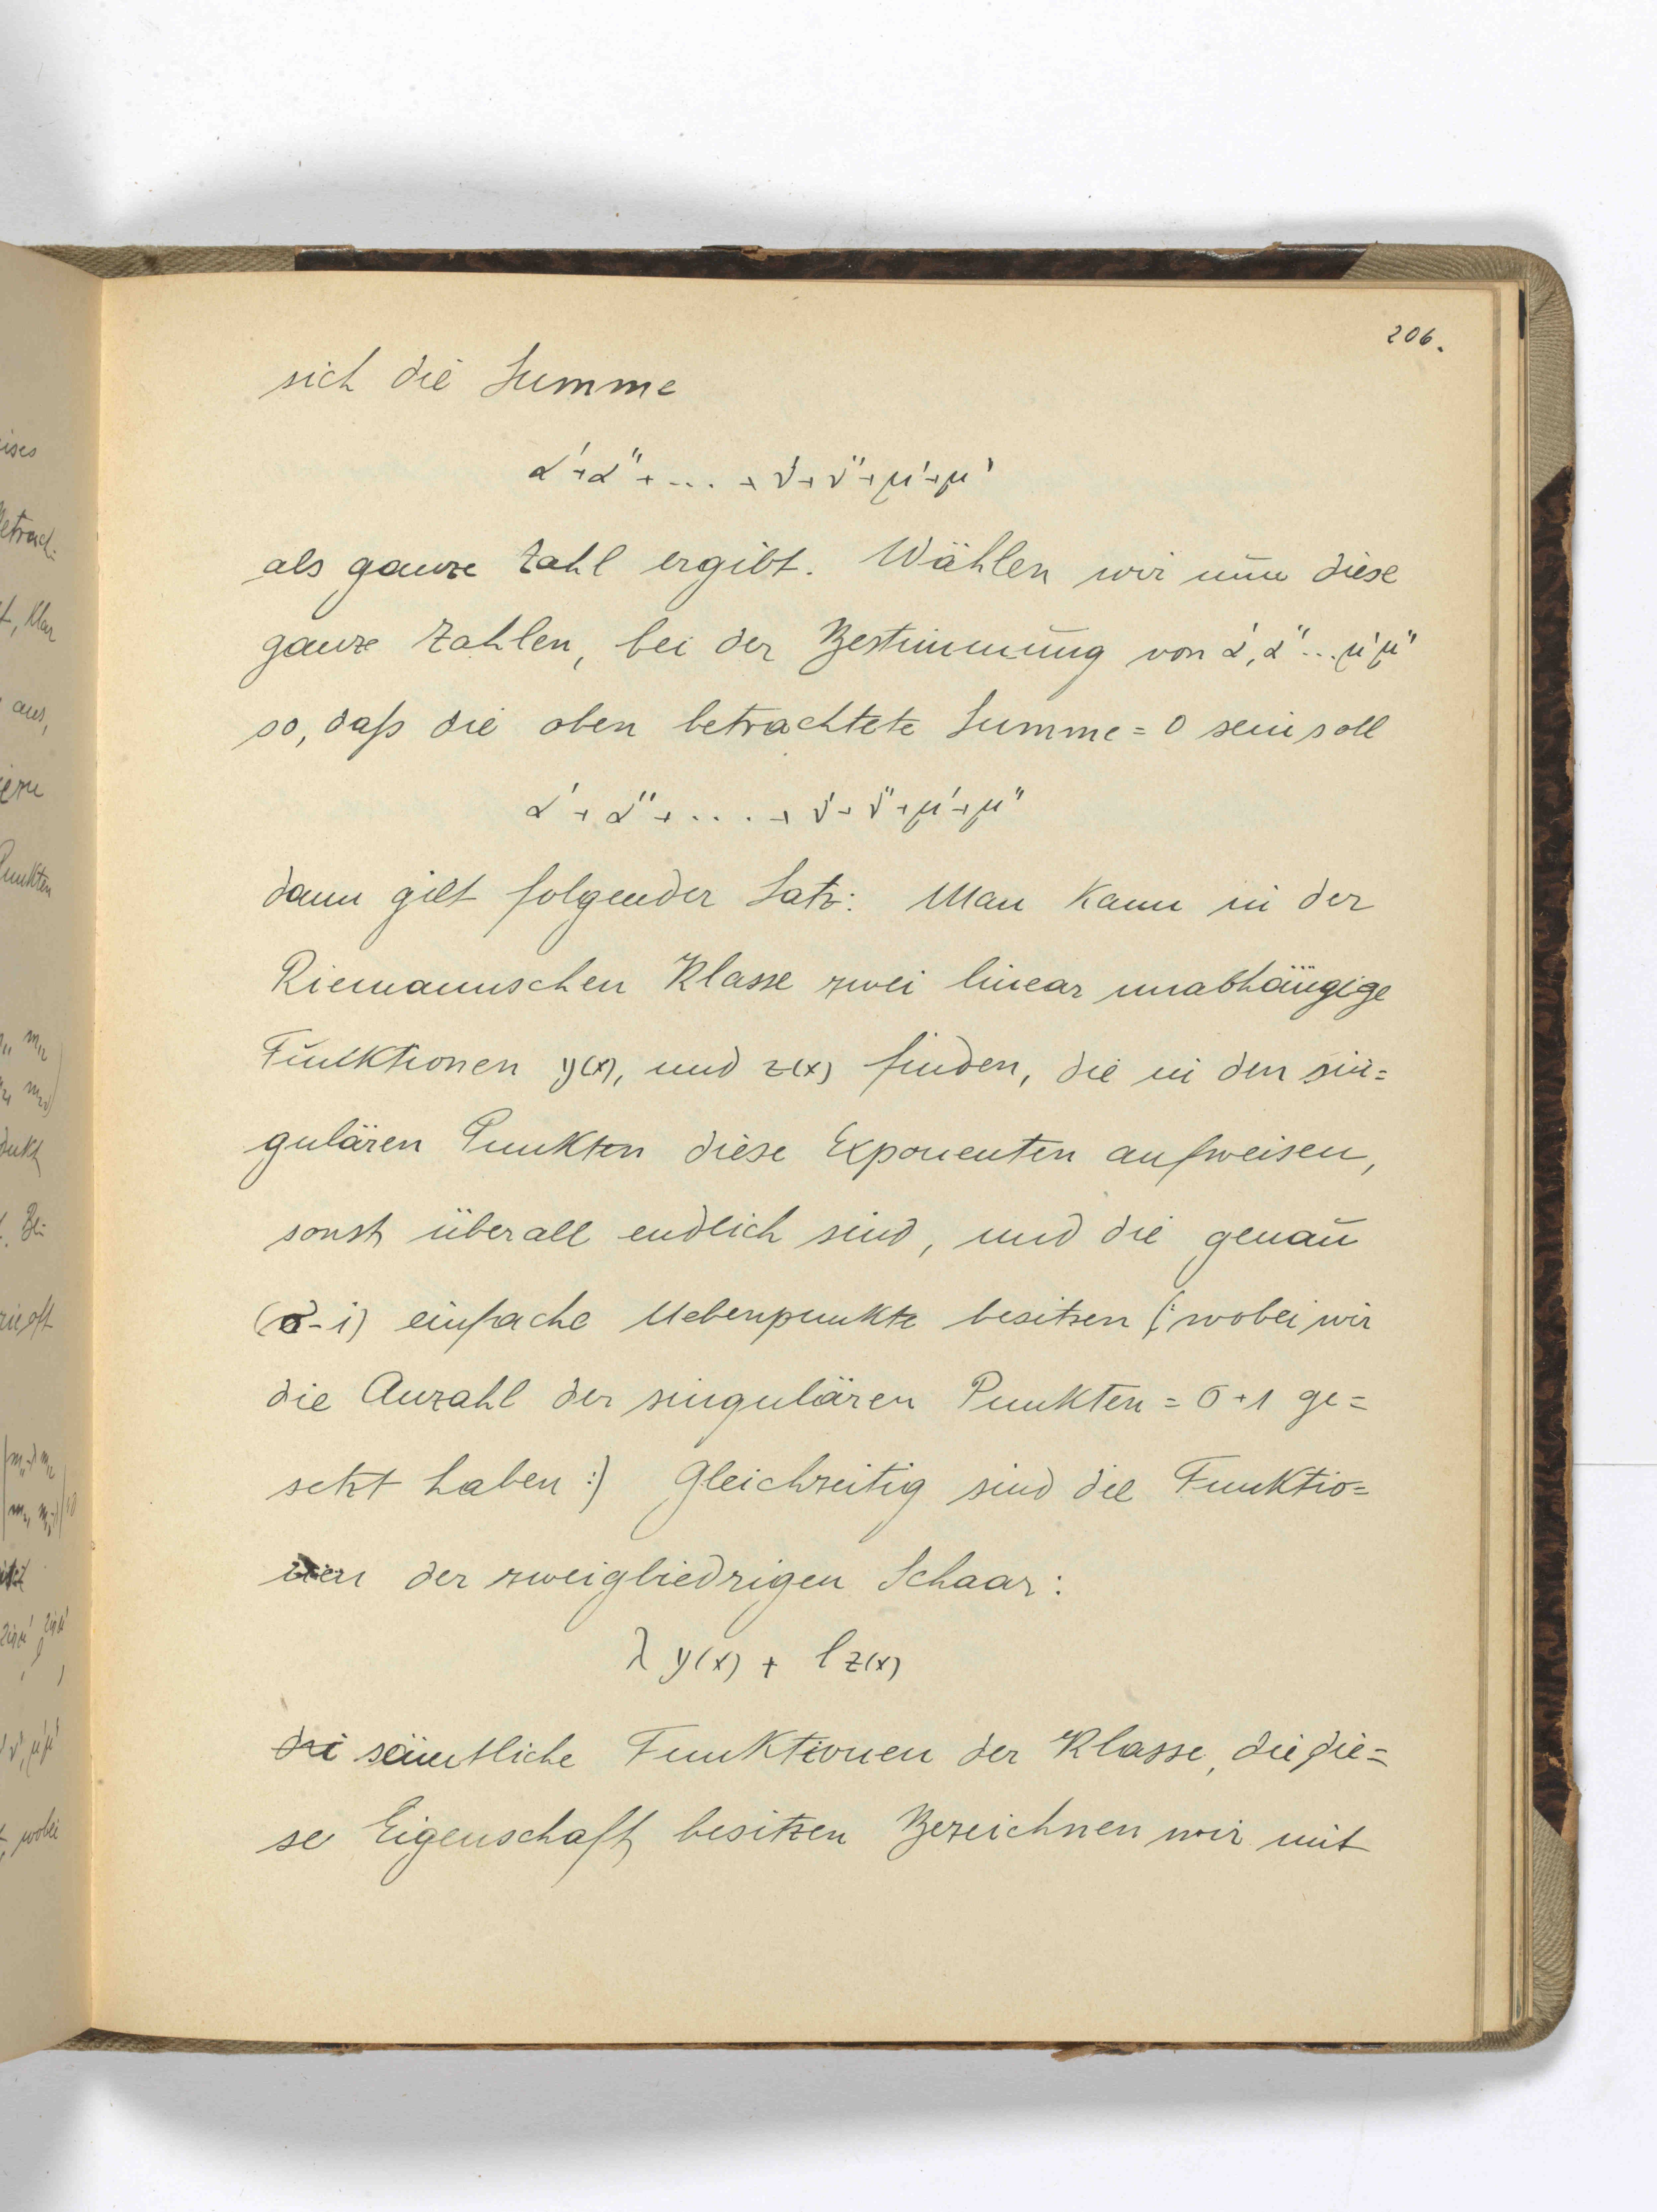 206.
sich die Summe
α'+α''+... + ν'+ν''+μ'+μ'
als ganze Zahl ergibt. Wählen wir nun diese
ganze Zahlen, bei der Bestimmung von α', α''... μ' μ''
so, daß die oben betrachtete Summe = 0 sein soll
α' + α'' + .... + ν' + ν'' + μ' + μ''
dann gilt folgender Satz: Man kann in der
Riemannschen Klasse zwei linear unabhängige
Funktionen y(x), und z(x) finden, die in den sin=
gulären Punkten diese Exponenten aufweisen,
sonst überall endlich sind, und die genau
(σ-1) einfache Nebenpunkte besitzen (: wobei wir
die Anzahl der singulären Punkten = σ+1 ge=
setzt haben :) Gleichzeitig sind die Funktio=
nen der zweigliedrigen Schaar:
λ y(x) + l z(x)
die sämtliche Funktionen der Klasse, die die=
se Eigenschaft besitzen Bezeichnen wir mit